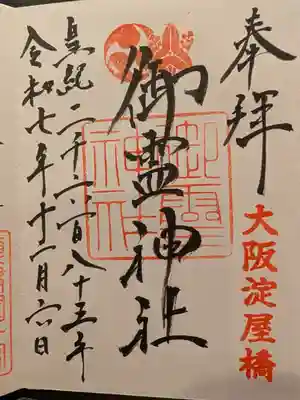 奉拝
大阪淀屋橋
御霊神社
御霊神社
皇紀二千六百八十五年
令和七年十一月六日